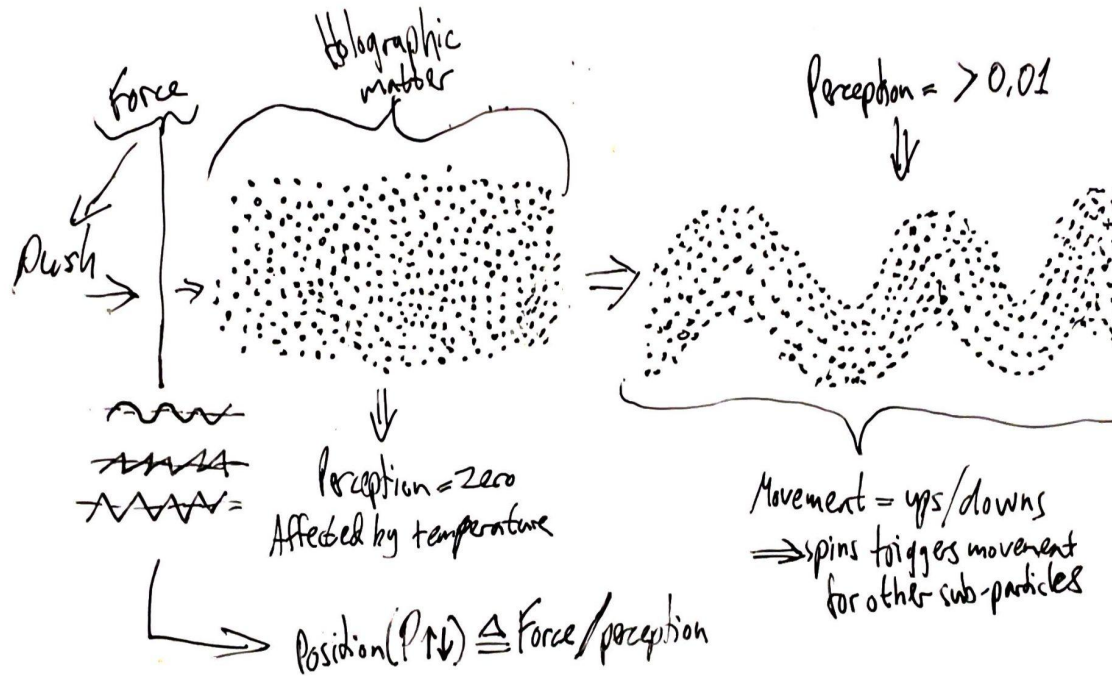 Force
Holographic
matter
Perception = > 0,01
Push
Perception = zero
Affected by temperature
Movement = ups/downs
⇒ spins triggers movement
for other sub-particles
Position (P↑↓) ≜ Force/perception